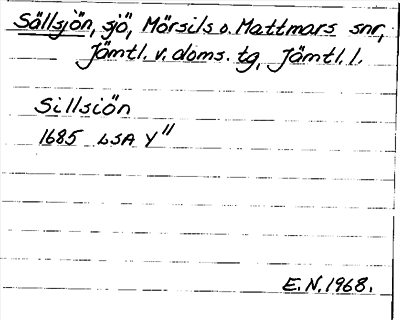 Sällsjön, sjö, Mörsils o. Mattmars snr,
Jämtl. v. doms. tg, Jämtl. l.
Sillsiön
1685 LSA Y"
E.N. 1968.